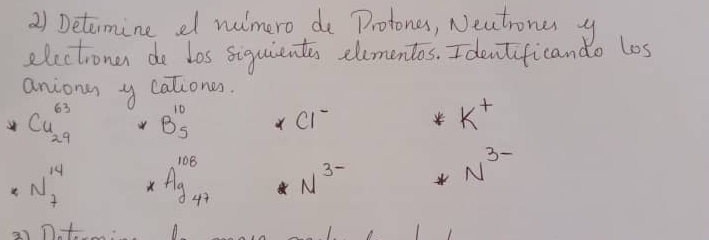 2) Determine el número de Protones, Neutrones y
electrones de los siguientes elementos. Identificando los
aniones y cationes.
* Cu⁶³₂₉ * B¹⁰₅ * Cl⁻ * K⁺
* N¹⁴₇ * Ag¹⁰⁸₄₇ * N³⁻ * N³⁻
3) Determine la